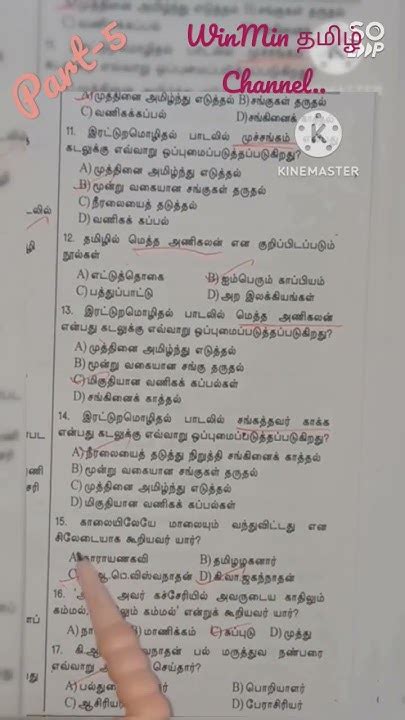 Part-5
WinMin தமிழ்
Channel..
KINEMASTER
A)முத்தினை அமிழ்ந்து எடுத்தல் B)சங்குகள் தருதல்
C) வணிகக்கப்பல் D)சங்கினைக்
11. இரட்டுறமொழிதல் பாடலில் முச்சங்கம்
கடலுக்கு எவ்வாறு ஒப்புமைப்படுத்தப்படுகிறது?
A)முத்தினை அமிழ்ந்து எடுத்தல்
B)மூன்று வகையான சங்குகள் தருதல்
C) நீரலையைத் தடுத்தல்
D) வணிகக் கப்பல்
12. தமிழில் மெத்த அணிகலன் என குறிப்பிடப்படும்
நூல்கள்
A)எட்டுத்தொகை B)ஐம்பெரும் காப்பியம்
C)பத்துப்பாட்டு D)அற இலக்கியங்கள்
13. இரட்டுறமொழிதல் பாடலில் மெத்த அணிகலன்
என்பது கடலுக்கு எவ்வாறு ஒப்புமைப்படுத்தப்படுகிறது?
A)முத்தினை அமிழ்ந்து எடுத்தல்
B)மூன்று வகையான சங்கு தருதல்
C)மிகுதியான வணிகக் கப்பல்கள்
D)சங்கினைக் காத்தல்
14. இரட்டுறமொழிதல் பாடலில் சங்கத்தவர் காக்க
என்பது கடலுக்கு எவ்வாறு ஒப்புமைப்படுத்தப்படுகிறது?
A)நீரலையைத் தடுத்து நிறுத்தி சங்கினைக் காத்தல்
B)மூன்று வகையான சங்குகள் தருதல்
C)முத்தினை அமிழ்ந்து எடுத்தல்
D)மிகுதியான வணிகக் கப்பல்கள்
15. காலையிலேயே மாலையும் வந்துவிட்டது என
சிலேடையாக கூறியவர் யார்?
A)நாராயணகவி B)தமிழழகனார்
ஆ.பெ.விஸ்வநாதன் D)கி.வா.ஜகந்நாதன்
16. அவர் கச்சேரியில் அவருடைய காதிலும்
கம்மல், கம்மல் என்றுக் கூறியவர் யார்?
B)மாணிக்கம் C)சுப்பு D)முத்து
17. பல் மருத்துவ நண்பரை
எவ்வாறு செய்தார்?
B)பொறியாளர்
D)பேராசிரியர்